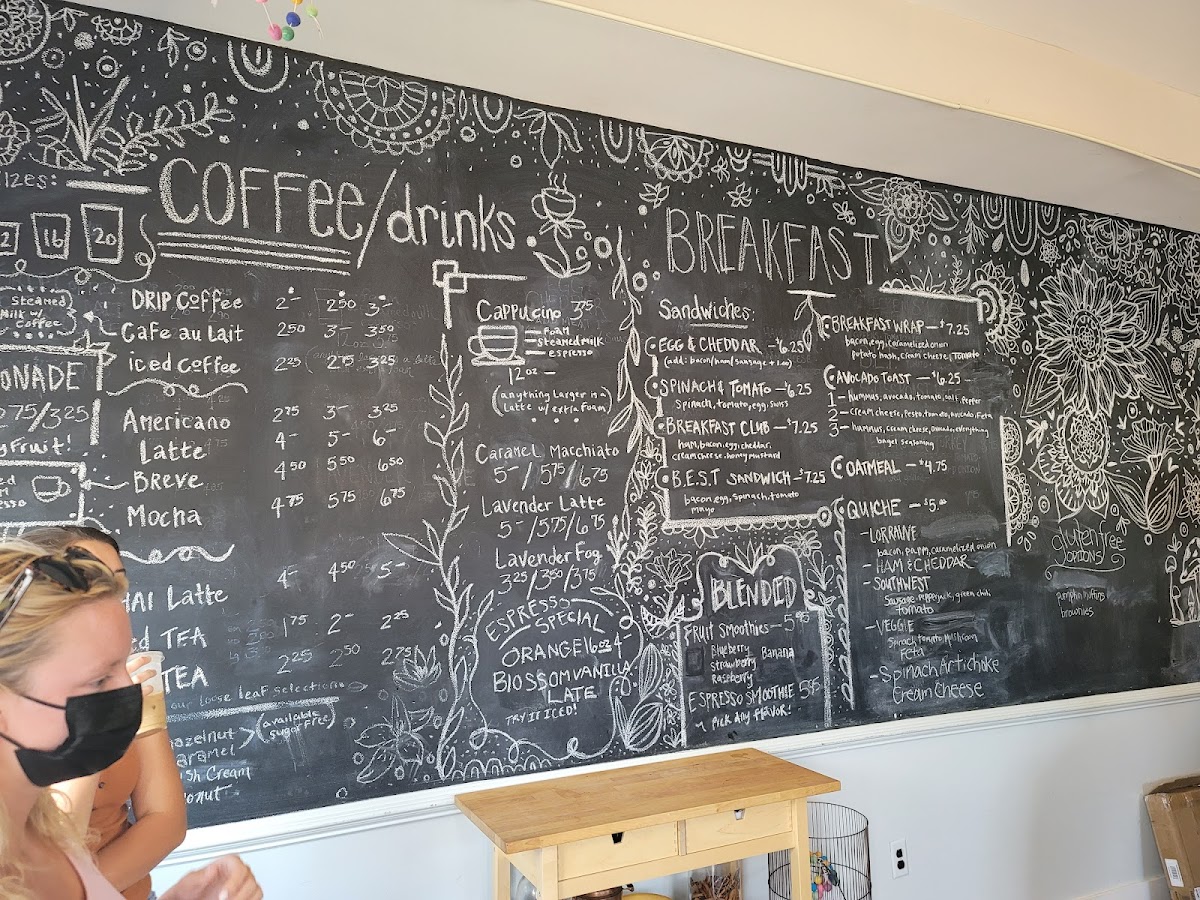 izes:
12 16 20
COFFee/drinks
Steamed
Milk w/
Coffee
DRIP COFFee 2— 250 3—
Cafe au Lait 250 3— 350
iced Coffee 225 275 325
ONADE
275/325
yfruit!
Americano 275 3— 325
Latte 4— 5— 6—
Breve 450 550 650
Mocha 475 575 675
HAI Latte 4— 450 5—
ed TEA 175 2— 225
TEA 225 250 275
our loose leaf selection
hazelnut
aramel
ish Cream
onut
(available
sugar free)
Cappucino 375
FOAM
steamed milk
espresso
12oz —
(anything Larger is a
Latte w/ extra foam)
Caramel Macchiato
5—/575/675
Lavender Latte
5—/575/675
Lavender Fog
325/350/375
ESPRESSO
SPECIAL
ORANGE 16oz 4—
BLOSSOM VANILLA
LATE
TRY IT ICED!
BREAKFAST
Sandwiches:
EGG & CHEDDAR —$6.25
(add: bacon/ham/sausage +1.00)
SPINACH & TOMATO —$6.25
Spinach, tomato, egg, swiss
BREAKFAST CLUB —$7.25
ham, bacon, egg, cheddar,
cream cheese, honey mustard
B.E.S.T SANDWICH —$7.25
bacon, egg, spinach, tomato
mayo
BREAKFAST WRAP —$7.25
bacon, egg, caramelized onion
potato hash, cream cheese, tomato
AVOCADO TOAST —$6.25—
1— hummus, avocado, tomato, salt, pepper
2— cream cheese, Pesto, tomato, avocado, Feta
3— hummus, cream cheese, avocado, everything
bagel seasoning
OATMEAL —$4.75
QUICHE —$5.00
—LORRAINE
bacon, parm, caramelized onion
—HAM & CHEDDAR
—SOUTHWEST
Sausage, pepperjack, green chili,
Tomato
—VEGGIE
Spinach, tomato, mushroom
Feta
—Spinach Artichoke
Cream Cheese
BLENDED
FRUIT Smoothies — 595
Blueberry Banana
Strawberry
Raspberry
ESPRESSO SMOOTHIE 595
~ PICK ANY FLAVOR!
gluten free
OPTIONS
pumpkin muffins
brownies